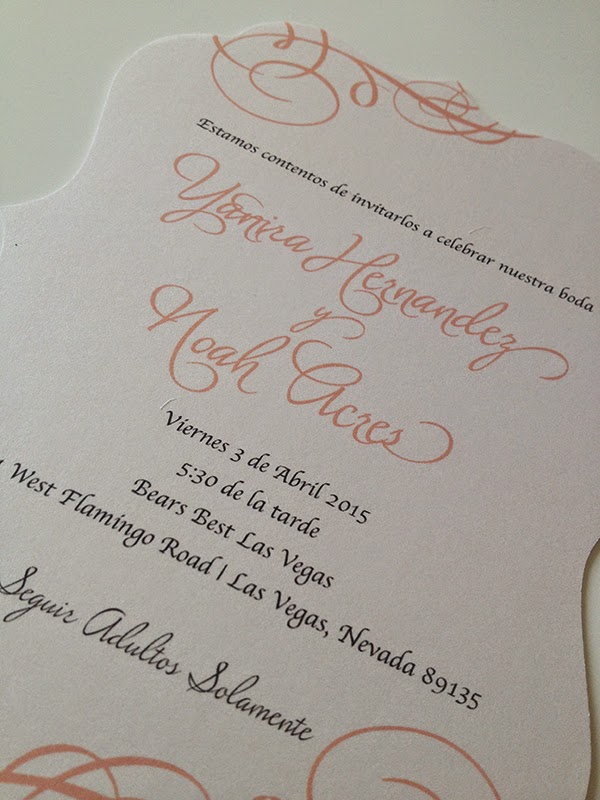 Estamos contentos de invitarlos a celebrar nuestra boda
Yanira Hernandez
y
Noah Acres
Viernes 3 de Abril 2015
5:30 de la tarde
Bears Best Las Vegas
West Flamingo Road | Las Vegas, Nevada 89135
Seguir Adultos Solamente